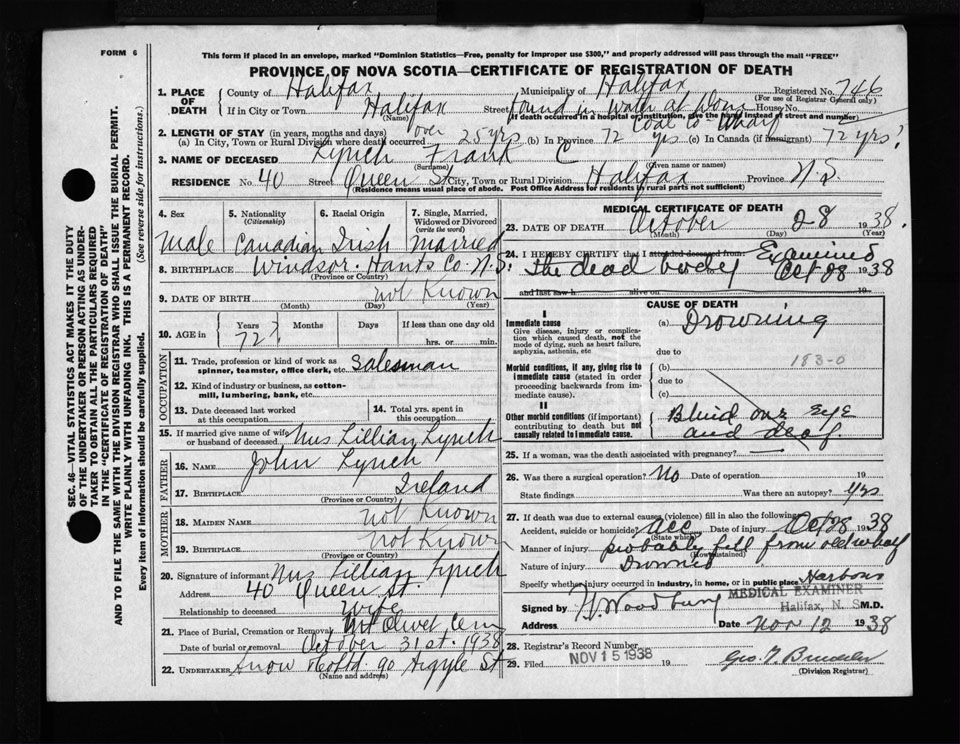 FORM 6
This form if placed in an envelope, marked "Dominion Statistics—Free, penalty for improper use $300," and properly addressed will pass through the mail "FREE"
PROVINCE OF NOVA SCOTIA—CERTIFICATE OF REGISTRATION OF DEATH
1. PLACE OF DEATH County of Halifax Municipality of Halifax Registered No. 746
(For use of Registrar General only)
If in City or Town Halifax Street found in Water at House No.
(Name) (If death occurred in a hospital or institution, give the name instead of street and number)
Coal Co Wharf
2. LENGTH OF STAY (in years, months and days)
(a) In City, Town or Rural Division where death occurred over 25 yrs (b) In Province 72 yrs (c) In Canada (if immigrant) 72 yrs?
3. NAME OF DECEASED Lynch Frank C
(Surname) (Given name or names)
RESIDENCE No. 40 Street Queen St City, Town or Rural Division Halifax Province N.S.
(Residence means usual place of abode. Post Office Address for residents in rural parts not sufficient)
4. Sex 5. Nationality (Citizenship) 6. Racial Origin 7. Single, Married, Widowed or Divorced (write the word)
Male Canadian Irish Married
8. BIRTHPLACE Windsor. Hants Co. N.S.
(Province or Country)
9. DATE OF BIRTH not Known
(Month) (Day) (Year)
10. AGE in Years Months Days If less than one day
72? hrs. or min.
OCCUPATION
11. Trade, profession or kind of work as spinner, teamster, office clerk, etc. Salesman
12. Kind of industry or business, as cotton-mill, lumbering, bank, etc.
13. Date deceased last worked at this occupation 14. Total yrs. spent in this occupation
15. If married give name of wife or husband of deceased. Mrs Lillian Lynch
FATHER
16. NAME John Lynch
17. BIRTHPLACE Ireland
(Province or Country)
MOTHER
18. MAIDEN NAME not Known
19. BIRTHPLACE not Known
(Province or Country)
20. Signature of informant Mrs Lillian Lynch
Address 40 Queen St.
Relationship to deceased Wife
21. Place of Burial, Cremation or Removal Mt Olivet Cem
Date of burial or removal October 31st. 1938
22. UNDERTAKER Snow & Co Ltd. 90 Argyle St
(Name and address)
MEDICAL CERTIFICATE OF DEATH
23. DATE OF DEATH October 28 1938
(Month) (Day) (Year)
24. I HEREBY CERTIFY that I attended deceased from Examined
the dead body Oct 28 1938
and last saw h alive on 19
CAUSE OF DEATH
I
Immediate cause (a) Drowning
Give disease, injury or complication which caused death, not the mode of dying, such as heart failure, asphyxia, asthenia, etc
due to
183-0
Morbid conditions, if any, giving rise to immediate cause (stated in order proceeding backwards from immediate cause). (b)
due to
(c)
II
Other morbid conditions (if important) contributing to death but not causally related to immediate cause. Blind one eye
and deaf.
25. If a woman, was the death associated with pregnancy? —
26. Was there a surgical operation? No Date of operation 19
State findings Was there an autopsy? Yes
27. If death was due to external causes (violence) fill in also the following:
Accident, suicide or homicide? Acc Date of injury Oct 28 1938
(State which)
Manner of injury probable fall from old wharf
(How sustained)
Nature of injury Drowned
Specify whether injury occurred in industry, in home, or in public place Harbour
MEDICAL EXAMINER
Signed by H. Woodbury Halifax, N. S. M.D.
Address Date Nov 12 1938
28. Registrar's Record Number
29. Filed NOV 15 1938 19 Geo.
(Division Registrar)
SEC. 46—VITAL STATISTICS ACT MAKES IT THE DUTY
OF THE UNDERTAKER OR PERSON ACTING AS UNDER-
TAKER TO OBTAIN ALL THE PARTICULARS REQUIRED
IN THE "CERTIFICATE OF REGISTRATION OF DEATH"
AND TO FILE THE SAME WITH THE DIVISION REGISTRAR WHO SHALL ISSUE THE BURIAL PERMIT.
WRITE PLAINLY WITH UNFADING INK. THIS IS A PERMANENT RECORD.
Every item of information should be carefully supplied. (See reverse side for instructions.)